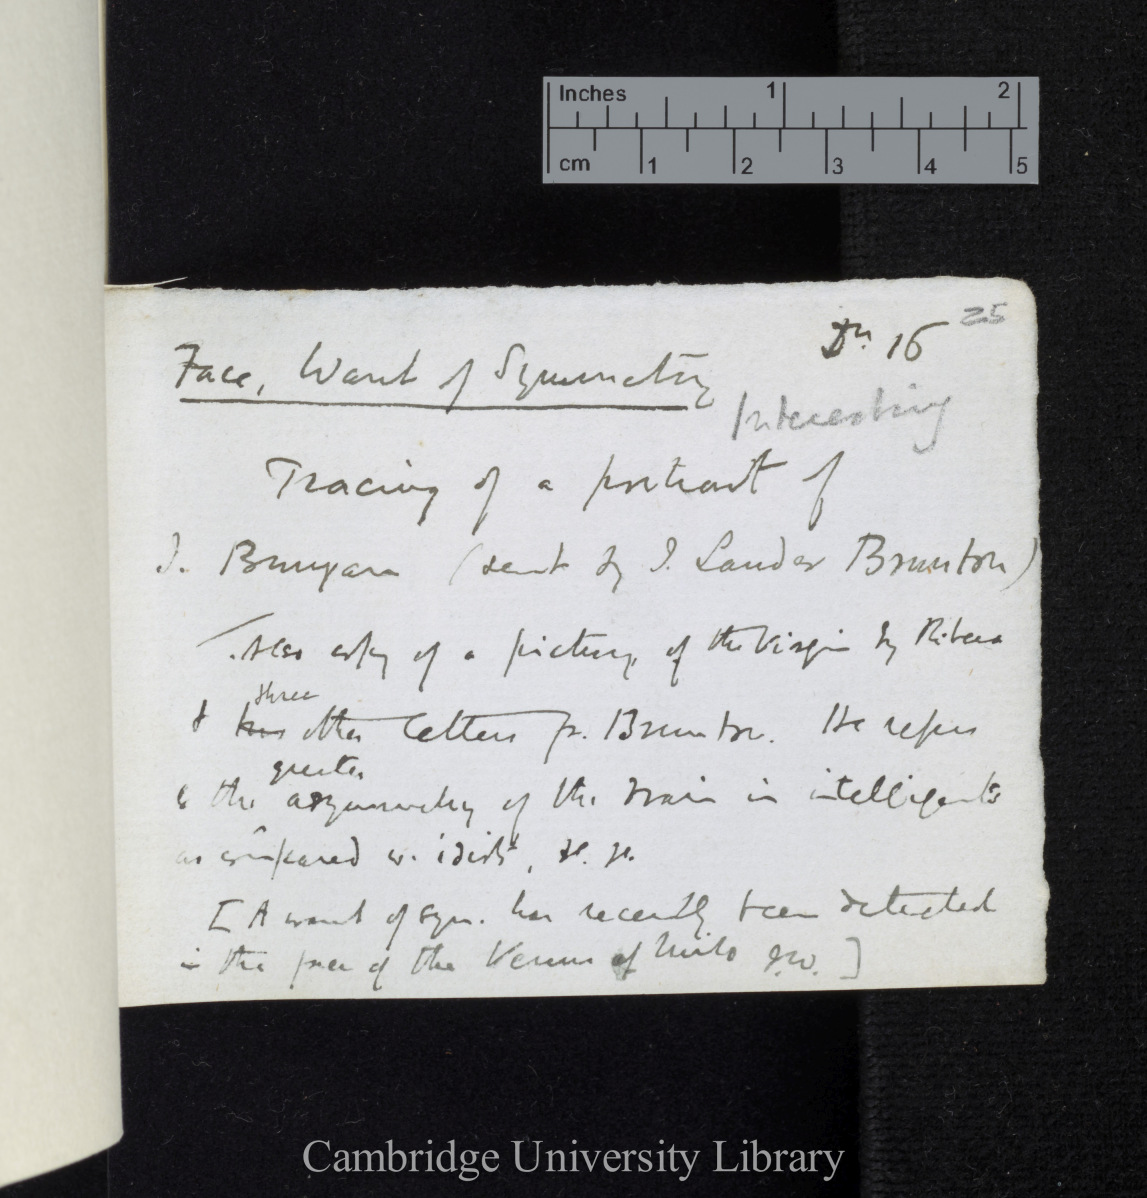 Inches 1 2
cm 1 2 3 4 5
25
Dr. 16
Face, Want of Symmetry
Interesting
Tracing of a portrait of
J. Bunyan (sent by J. Lauder Brunton)
Also copy of a picture of the Virgin by Ribera
three
& two other letters fr. Brunton. He refers
greater
to the asymmetry of the brain in intelligents
as compared w. idiots, &c. &c.
[A want of sym. has recently been detected
in the face of the Venus of Milo J.W.]
Cambridge University Library